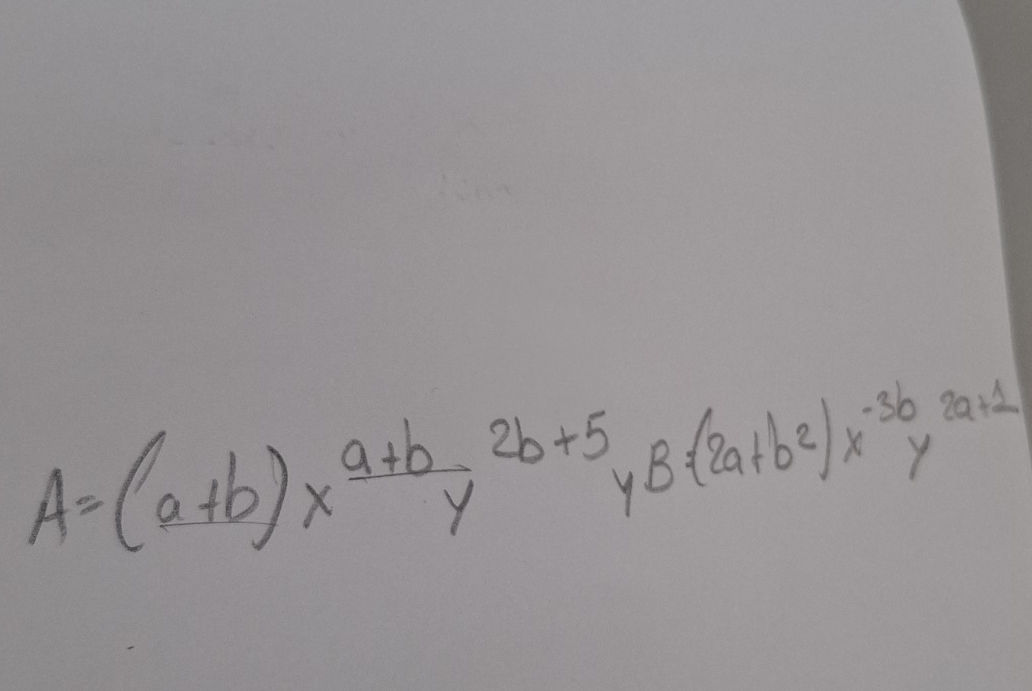 A=(a+b)x^{a+b} y^{2b+5} y B=(2a+b²)x^{-3b} y^{2a+1}